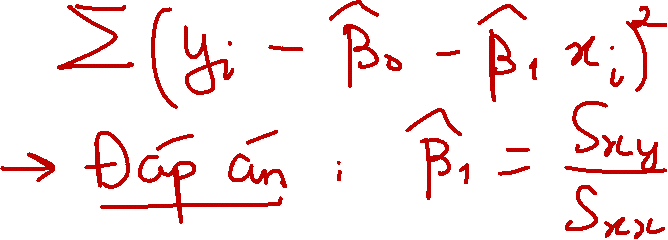 Σ(yᵢ - β̂₀ - β̂₁ xᵢ)²
→ Đáp án : β̂₁ = Sxy / Sxx